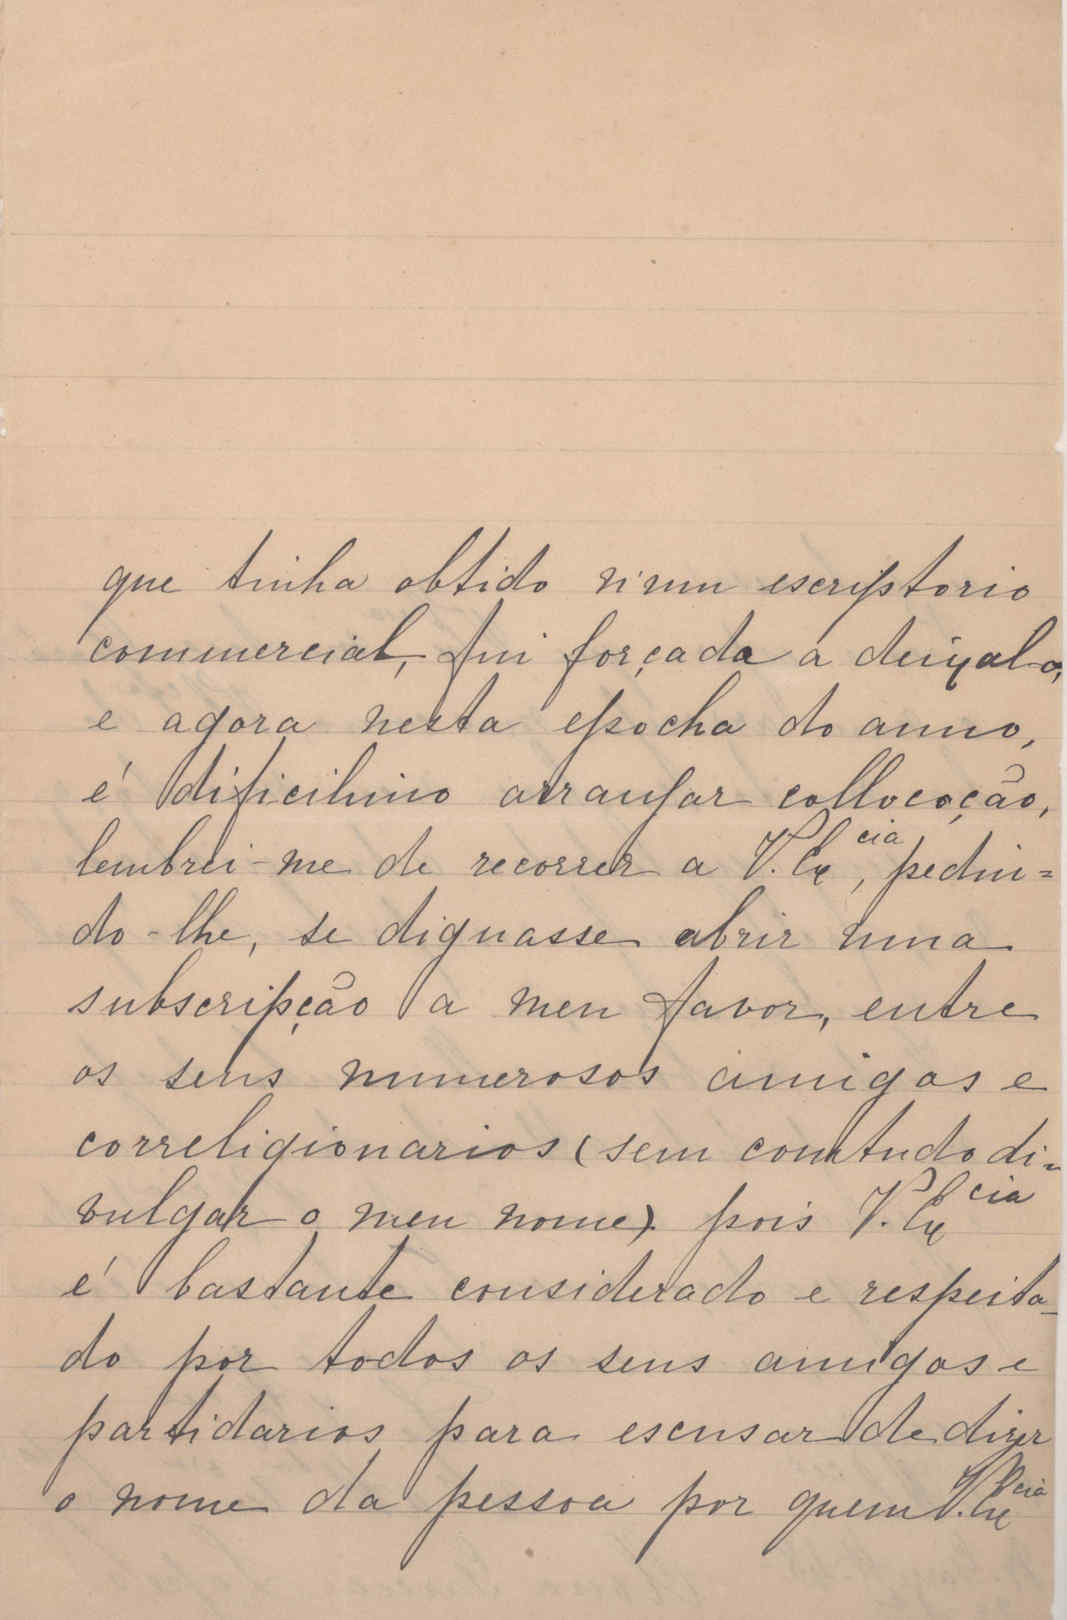 que tinha obtido n'um escriptorio
commercial, fui forçada a deixal-o,
e agora nesta epocha do anno,
é dificilimo arranjar collocação,
lembrei-me de recorrer a V. Ex^cia, pedin=
do-lhe, se dignasse abrir uma
subscripção a meu favor, entre
os seus numerosos amigos e
correligionarios (sem comtudo di-
vulgar o meu nome) pois V. Ex^cia
é bastante considerado e respeita-
do por todos os seus amigos e
partidarios para escusar de dizer
o nome da pessoa por quem V. Ex^cia